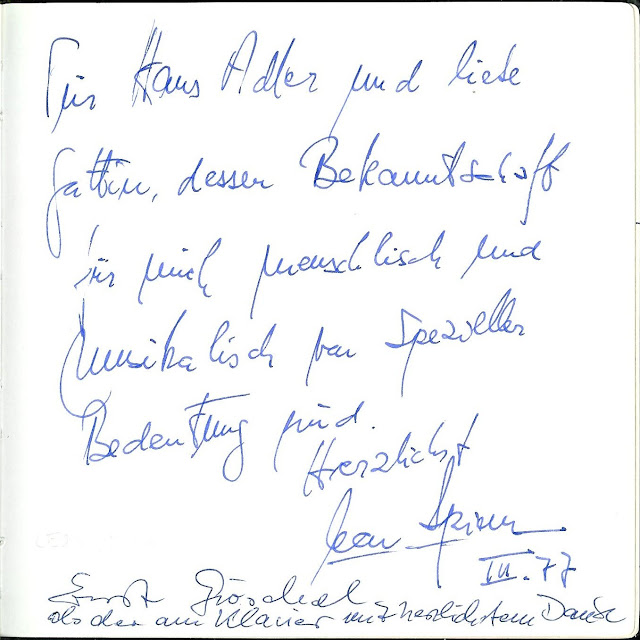 Für Hans Adler und liebe
Gattin, dessen Bekanntschaft
für mich menschlisch und
Musikalisch von Spezieller
Bedeutung sind.
Herzlichst
Jean Spicer
III.77
Ernst Gröschel
als der am Klavier mit herzlichstem Dank